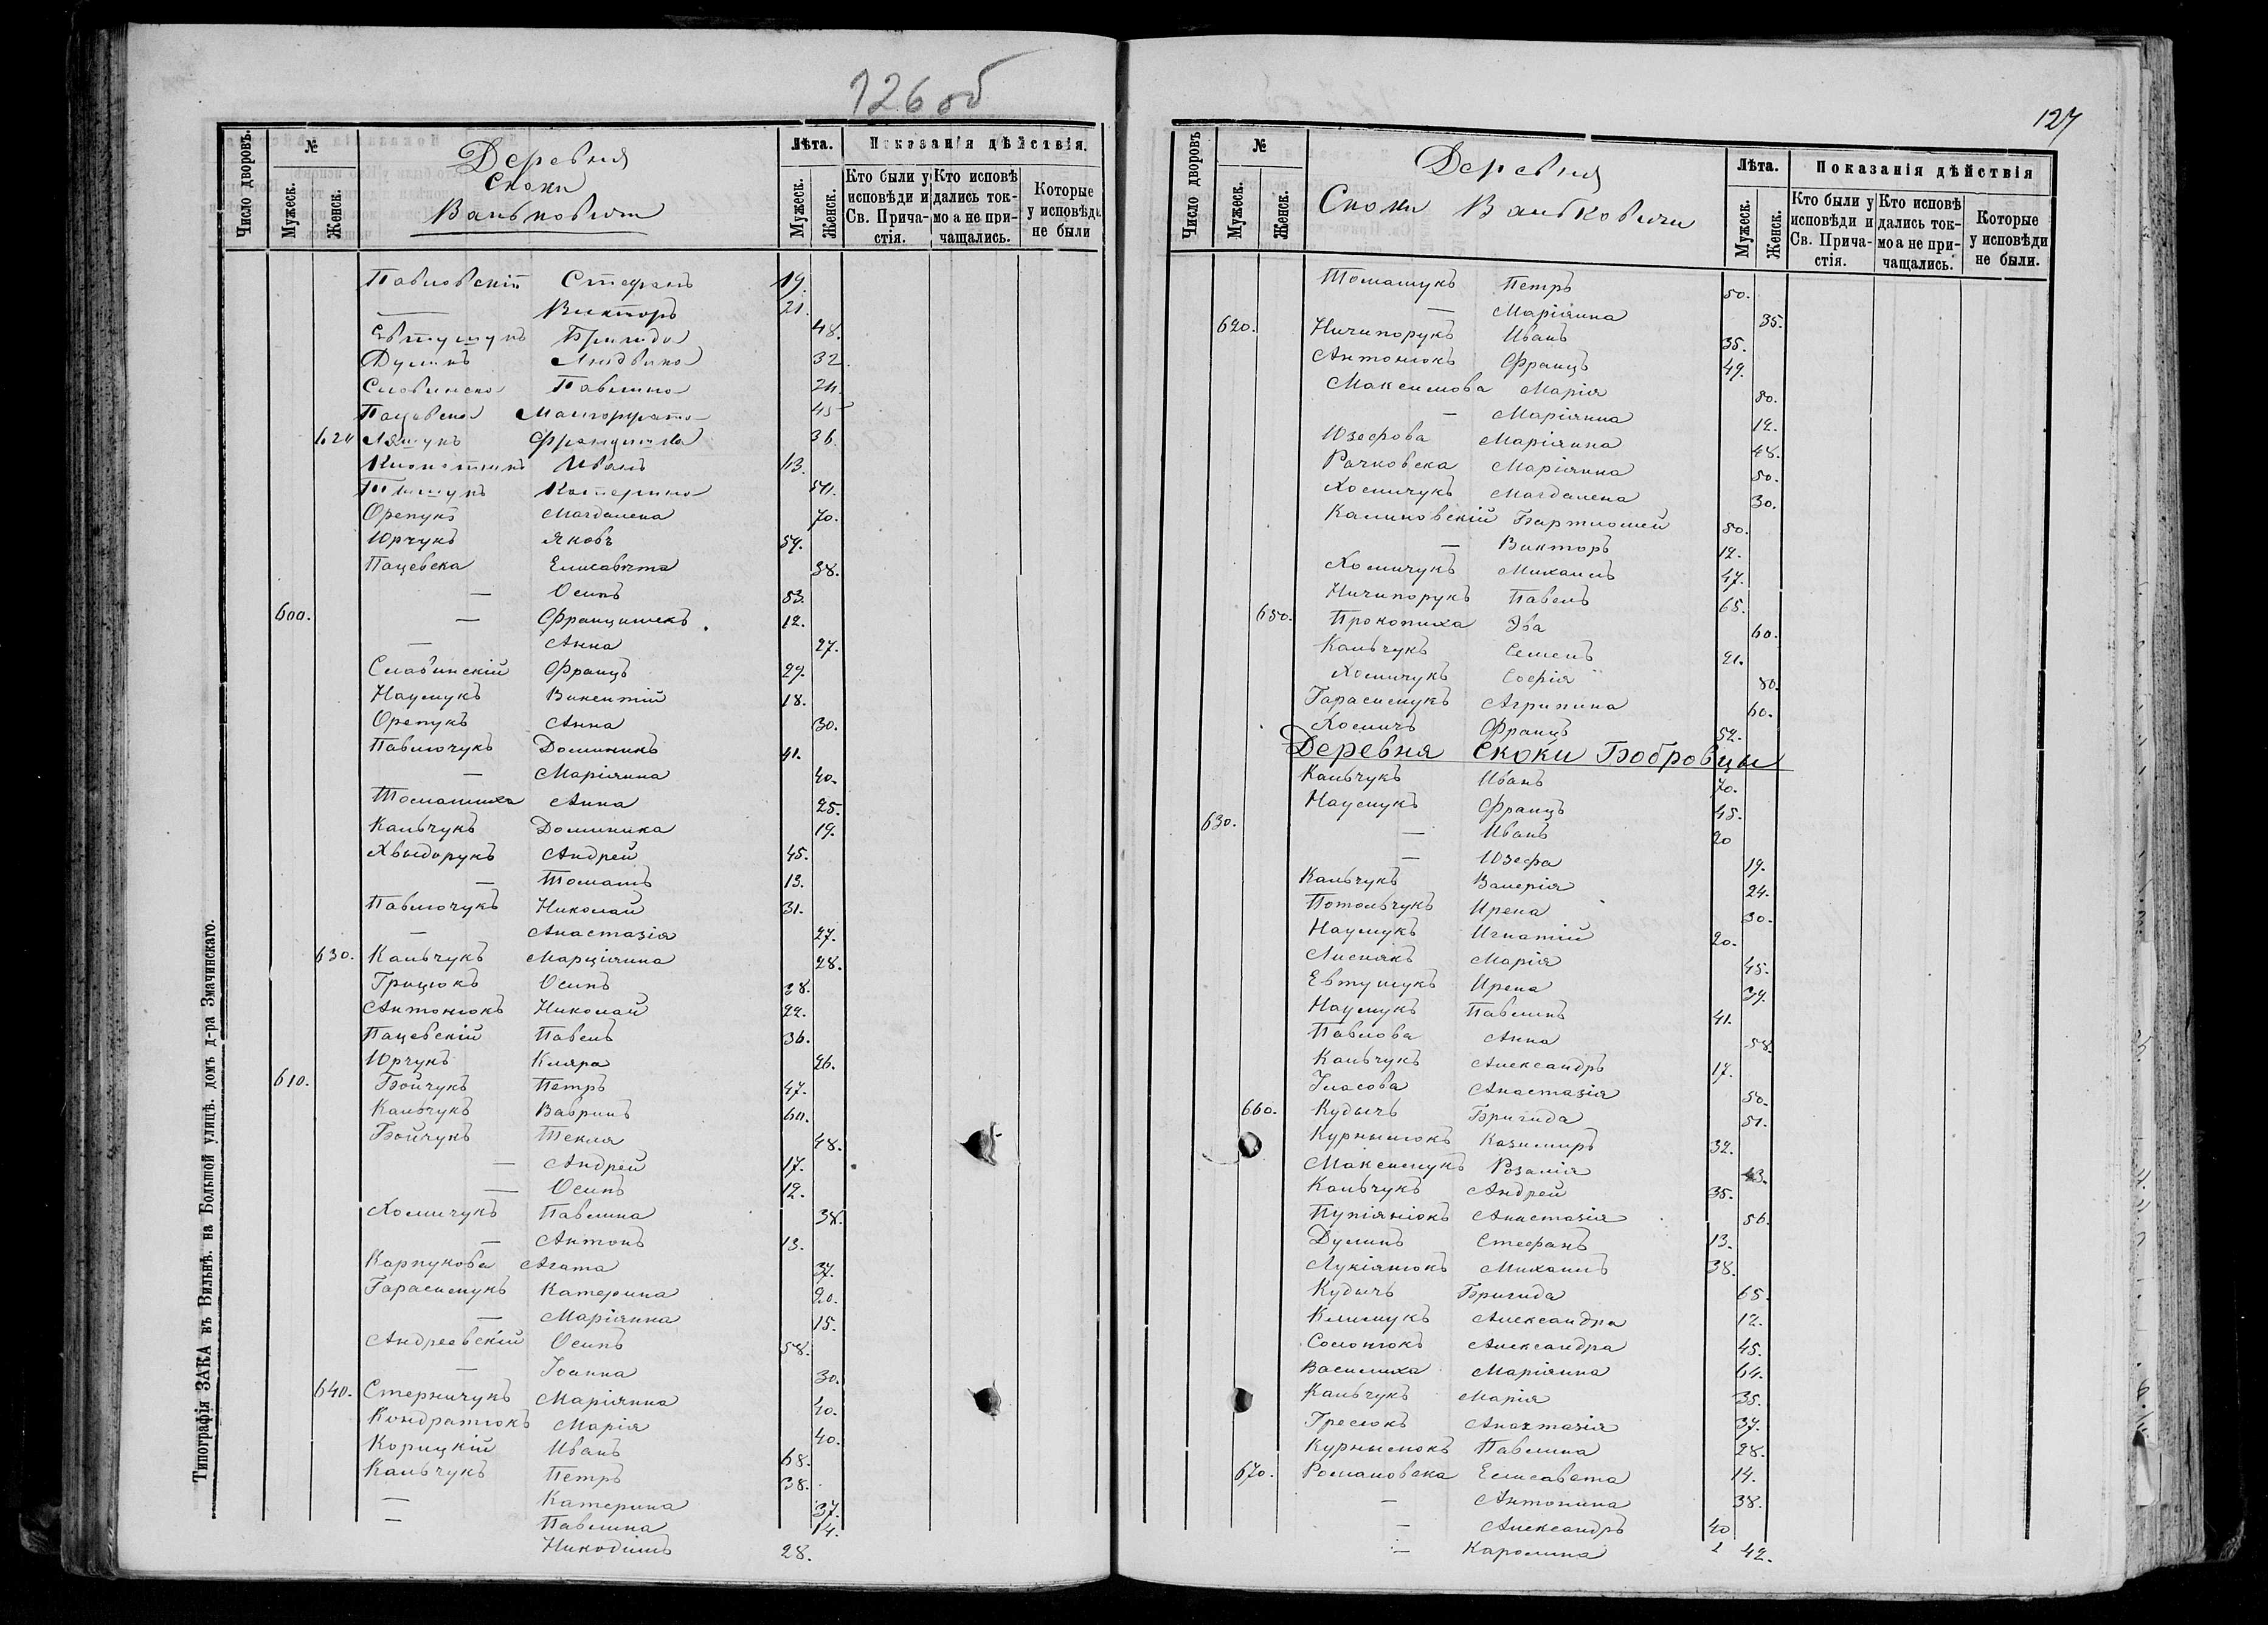 126 об
Число дворовъ.
№
Мужеск.
Женск.
Деревня
Скоки
Ваньковичи
Лѣта.
Мужеск.
Женск.
Показанія дѣйствія.
Кто были у исповѣди и Св. Причастія.
Кто исповѣдались токмо а не причащались.
Которые у исповѣди не были
Павловскій Стефанъ 19.
— Викторъ 21.
Евтушукъ Бригида 48.
Думинъ Людвика 32.
Славинска Павлина 24
Пацевска Малгоржата 45
620 Ляшукъ Францишка 36.
Иванъ 43.
Катерина 54.
Орепукъ Магдалена 70.
Юрчукъ Яковъ 59.
Пацевска Елисавета 38.
— Осипъ 53.
600. — Францишекъ 12.
— Анна 27.
Славинскій Францъ 29.
Наумукъ Викентій 18.
Орепукъ Анна 30.
Павлючукъ Доминикъ 41.
— Маріянна 40.
Томашиха Анна 25.
Кальчукъ Доминика 19.
Хвыдорукъ Андрей 45.
— Томашъ 13.
Павлючукъ Николай 31.
— Анастазія 27.
630. Кальчукъ Марціянна 28.
Грицюкъ Осипъ 38.
Антонюкъ Николай 22.
Пацевскій Павелъ 36.
Юрчукъ Кляра 26.
610. Бойчукъ Петръ 47.
Кальчукъ Ваврин 60.
Бойчукъ Текля 48.
— Андрей 17.
— Осипъ 12.
Хомичукъ Павлина 38.
— Антонъ 13.
Карпукова Агата 37.
Гарасимукъ Катерина 20.
— Маріянна 15.
Андреевскій Осипъ 58.
— Іоанна 30.
640. Стерничукъ Маріянна 40.
Кондратюкъ Марія 40.
Корицкій Иванъ 68.
Кальчукъ Петръ 38.
— Катерина 37.
— Павлина 14.
Никодимъ 28.
Типографія ЗАКА въ Вильнѣ. на Большой улицѣ. домъ д-ра Змачинскаго.
127
Число дворовъ
№
Мужеск.
Женск.
Деревня
Скоки Ваньковичи
Лѣта.
Мужеск.
Женск.
Показанія дѣйствія
Кто были у исповѣди и Св. Причастія.
Кто исповѣдались токмо а не причащались.
Которые у исповѣди не были.
Томашукъ Петръ 50.
— Маріянна 35.
620. Ничипорукъ Иванъ 35.
Антонюкъ Францъ 49.
Максимова Марія 80.
— Маріянна 12.
Юзефова Маріянна 48.
Рачковска Маріянна 50.
Хомичукъ Магдалена 30.
Калиновскій Бартломей 50.
— Викторъ 12.
Хомичукъ Михаилъ 47.
Ничипорукъ Павелъ 65.
650. Прокопиха Эва 60.
Кальчукъ Семенъ 21.
Хомичукъ Софія 80.
Гарасимукъ Агрипина 60.
Хомичъ Францъ 52.
Деревня Скоки Бобровцы
Кальчукъ Иванъ 70.
Наумукъ Францъ 45.
630. — Иванъ 20
— Юзефа 19.
Кальчукъ Валерія 24.
Потольчукъ Ирена 30.
Наумукъ Игнатій 20.
Лиснякъ Марія 45.
Евтушукъ Ирена 37.
Наумукъ Павлинъ 41.
Павлова Анна 58.
Кальчукъ Александръ 17.
Уласова Анастазія 50.
660. Кудычъ Бригида 51.
Курнылюкъ Казимиръ 32.
Максимукъ Розалія 43.
Кальчукъ Андрей 35.
Анастазія 56.
Думинъ Стефанъ 13.
Лукіянюкъ Михаилъ 38.
Кудычъ Бригида 65.
Климукъ Александра 12.
Солонюкъ Александра 45.
Василиха Маріянна 64.
Кальчукъ Марія 35.
Гресюкъ Анастазія 37.
Курнылюкъ Павлина 28.
670. Романовска Елисавета 14.
— Антонина 38.
— Александръ 40
— Каролина 42.